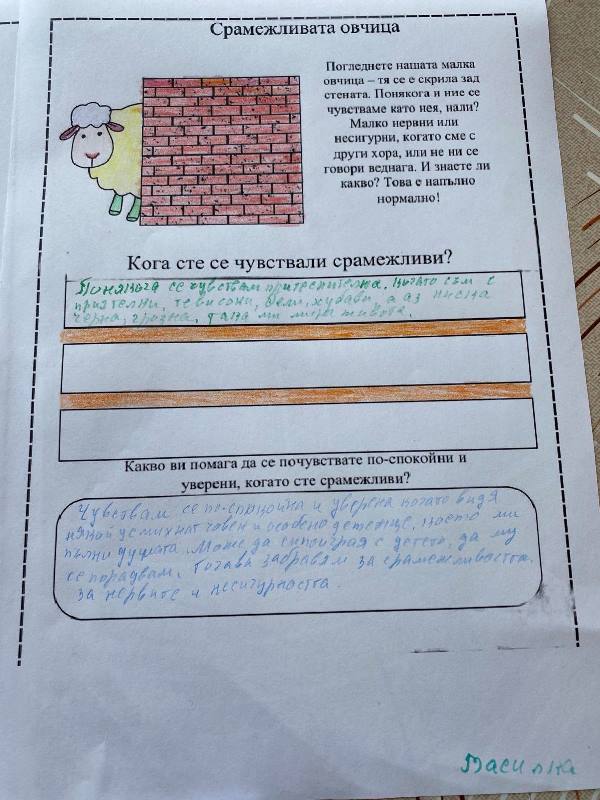 Срамежливата овчица
Погледнете нашата малка
овчица – тя се е скрила зад
стената. Понякога и ние се
чувстваме като нея, нали?
Малко нервни или
несигурни, когато сме с
други хора, или не ни се
говори веднага. И знаете ли
какво? Това е напълно
нормално!
Кога сте се чувствали срамежливи?
Понякога се чувствам притеснителна, когато съм с
приятелки, те високи, бели, хубави, а аз ниска
черна, грозна, така ми мина живота.
Какво ви помага да се почувствате по-спокойни и
уверени, когато сте срамежливи?
Чувствам се по-спокойна и уверена когато видя
някой усмихнат човек и особено детенце, което ми
пълни душата. Може да си поиграя с детето, да му
се порадвам. Тогава забравям за срамежливостта.
за нервите и несигурността.
Василка